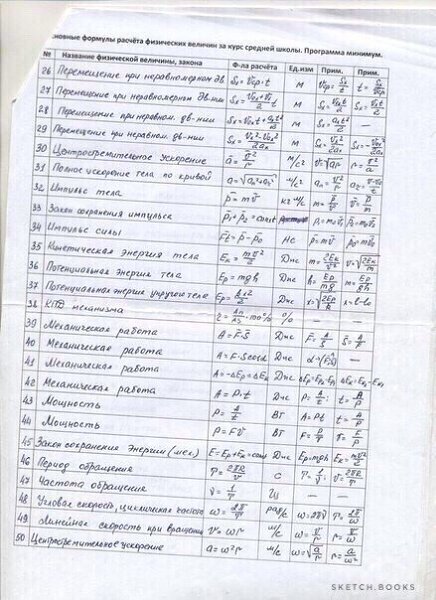 новные формулы расчёта физических величин за курс средней школы. Программа минимум.
№ Название физической величины, закона Ф-ла расчёта Ед.изм Прим. Прим.
26 Перемещение при неравномерном дв. Sx = Vср·t м Vср = Sx/t t = Sx/Vср
27 Перемещение при неравномерном дв-нии м
28 Перемещение при неравном. дв-нии Sx = V₀x t + axt²/2 м —
29 Перемещение при неравном. дв-нии м
30 Центростремительное ускорение a = V²/r м/с² r = V²/a
31 Полное ускорение тела по кривой м/с²
32 Импульс тела p̄ = mV̄ кг м/с m = p/V V = p/m
33 Закон сохранения импульса
34 Импульс силы F̄t = p̄ - p̄₀ Нс p̄ = mV̄
35 Кинетическая энергия тела Eк = mV²/2 Дж m = 2Eк/V² V = √2Eк/m
36 Потенциальная энергия тела Eр = mgh Дж h = Eр/mg m = Eр/gh
37 Потенциальная энергия упругого тела Eр = kx²/2 Дж x = √2Eр/k
38 КПД механизма ·100% % — —
39 Механическая работа A = F̄·S̄ Дж F̄ = A/S̄ S̄ = A/F̄
40 Механическая работа A = F·S cosα Дж —
41 Механическая работа A = -ΔEр = ΔEк Дж
42 Механическая работа A = P·t Дж P = A/t t = A/P
43 Мощность P = A/t Вт A = Pt t = A/P
44 Мощность P = FV Вт F = P/V V = P/F
45 Закон сохранения энергии (мех.) E = Eр + Eк = const Дж Eр = mgh Eк = mV²/2
46 Период обращения T = 2πR/V с
47 Частота обращения ν = 1/T Гц — —
48 Угловая скорость, циклическая частота ω = 2π/T рад/с ω = 2πν T = 2π/ω
49 Линейная скорость при вращении V = ωr м/с ω = V/r r = V/ω
50 Центростремительное ускорение a = ω²r м/с² ω = √a/r r = a/ω²
SKETCH.BOOKS